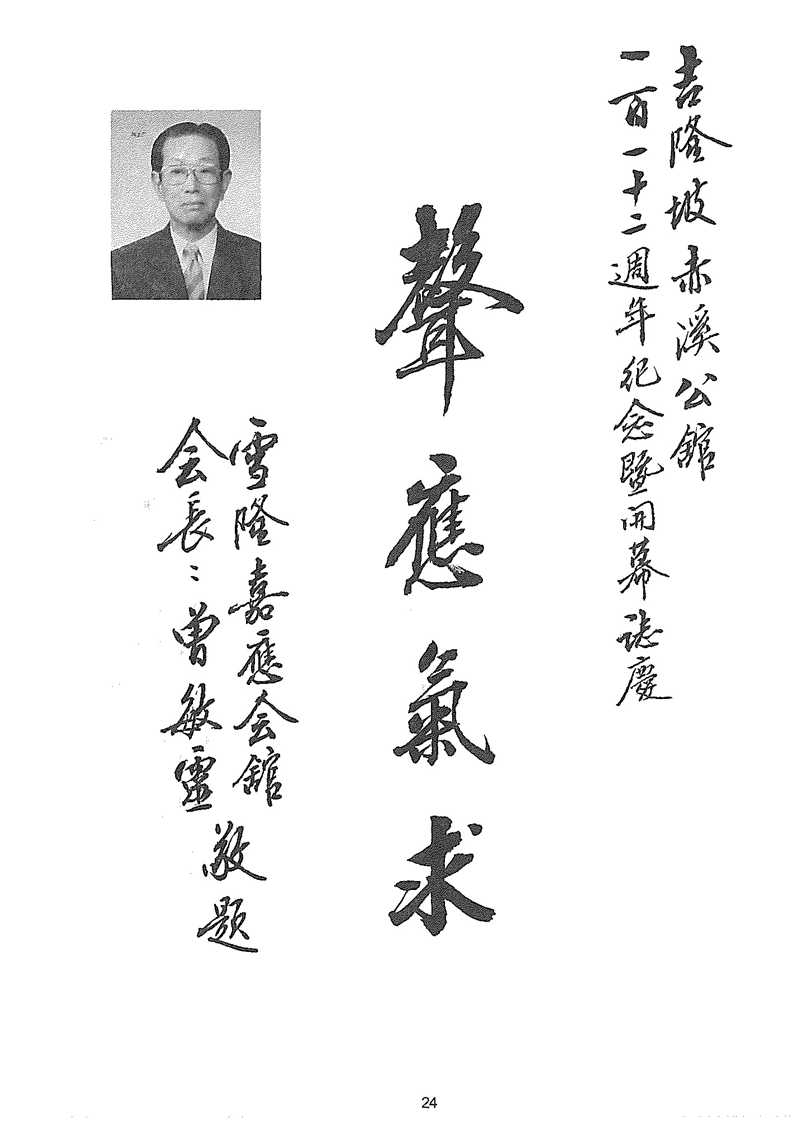 吉隆坡赤溪公舘
一百一十二週年紀念暨開幕誌慶
聲應氣求
雪隆嘉應会舘
会長：曾敏靈
敬題
24